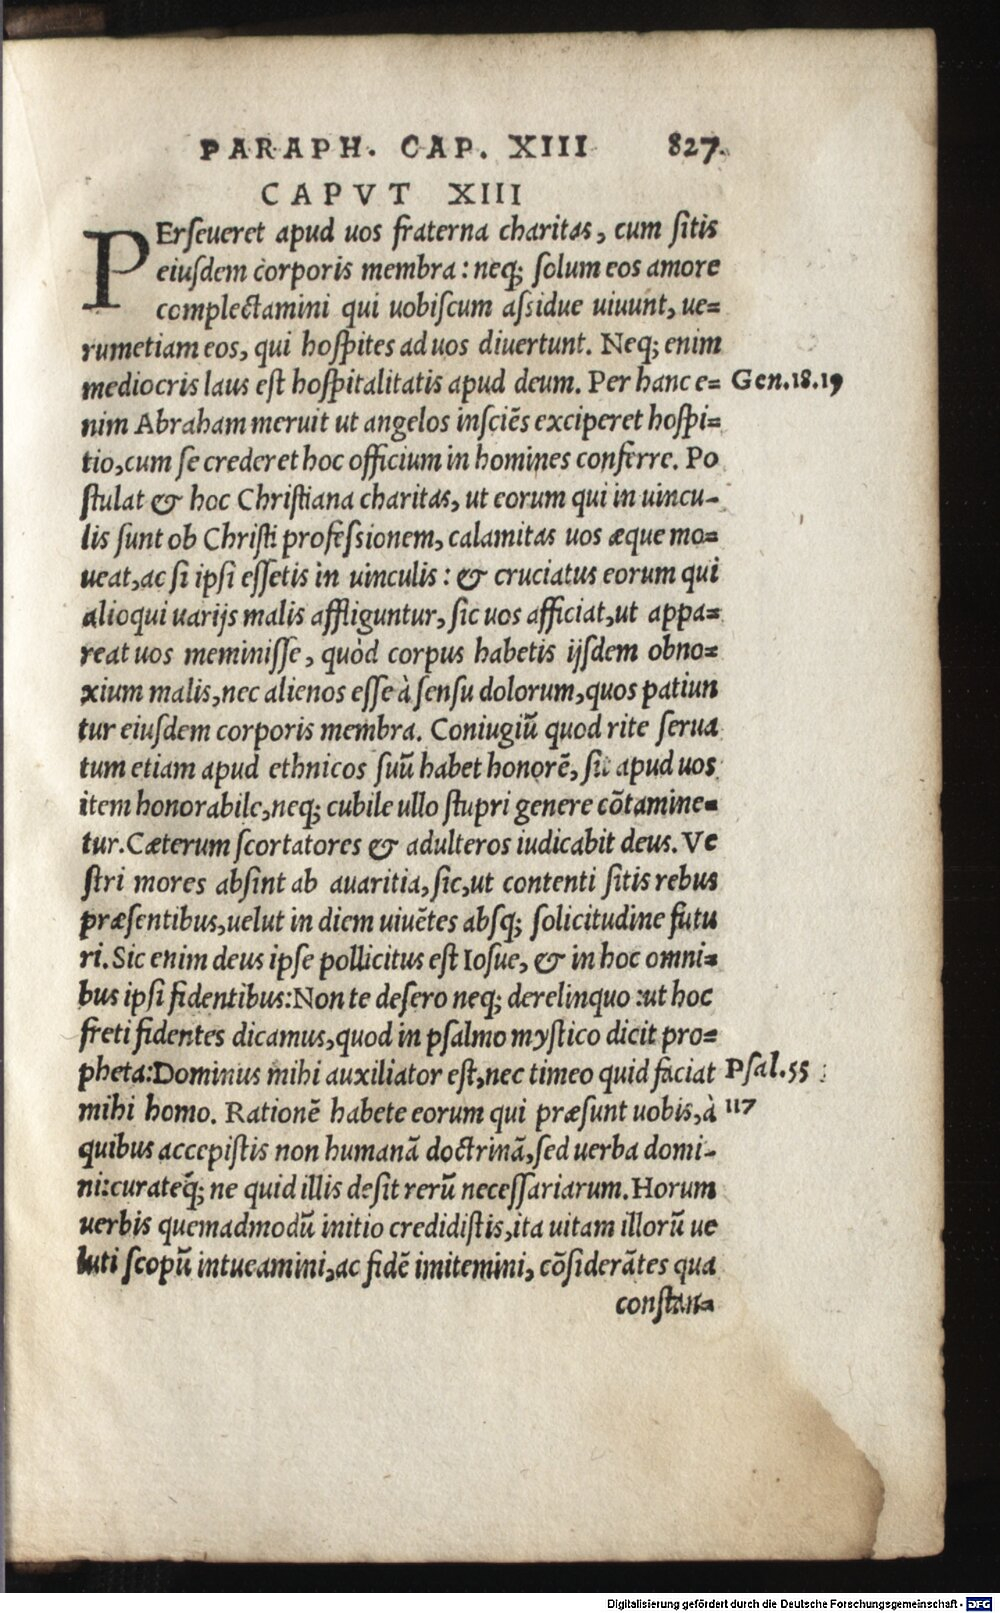 PARAPH. CAP. XIII 827.
CAPVT XIII
PErſeueret apud uos fraterna charitas, cum ſitis
eiuſdem corporis membra: neq; ſolum eos amore
complectamini qui uobiſcum aſsidue uiuunt, ue=
rumetiam eos, qui hoſpites ad uos diuertunt. Neq; enim
mediocris laus eſt hoſpitalitatis apud deum. Per hanc e= Gen.18.19
nim Abraham meruit ut angelos inſciẽs exciperet hoſpi=
tio, cum ſe crederet hoc officium in homines conferre. Po
ſtulat & hoc Chriſtiana charitas, ut eorum qui in uincu-
lis ſunt ob Chriſti profeſsionem, calamitas uos æque mo=
ueat, ac ſi ipſi eſſetis in uinculis: & cruciatus eorum qui
alioqui uarijs malis affliguntur, ſic uos afficiat, ut appa=
reat uos meminiſſe, quòd corpus habetis ijſdem obno=
xium malis, nec alienos eſſe à ſenſu dolorum, quos patiun
tur eiuſdem corporis membra. Coniugiũ quod rite ſerua
tum etiam apud ethnicos ſuũ habet honorẽ, ſit apud uos
item honorabile, neq; cubile ullo ſtupri genere cõtamine=
tur. Cæterum ſcortatores & adulteros iudicabit deus. Ve
ſtri mores abſint ab auaritia, ſic, ut contenti ſitis rebus
præſentibus, uelut in diem uiuẽtes abſq; ſolicitudine futu
ri. Sic enim deus ipſe pollicitus eſt Ioſue, & in hoc omni=
bus ipſi fidentibus: Non te deſero neq; derelinquo: ut hoc
freti fidentes dicamus, quod in pſalmo myſtico dicit pro=
pheta: Dominus mihi auxiliator eſt, nec timeo quid faciat Pſal.55
mihi homo. Rationẽ habete eorum qui præſunt uobis, à 117
quibus accepiſtis non humanã doctrinã, ſed uerba domi-
ni: curateq́; ne quid illis deſit rerũ neceſſariarum. Horum
uerbis quemadmodũ initio credidiſtis, ita uitam illorũ ue
luti ſcopũ intueamini, ac fidẽ imitemini, cõſiderãtes qua
conſtan=
Digitalisierung gefördert durch die Deutsche Forschungsgemeinschaft - DFG